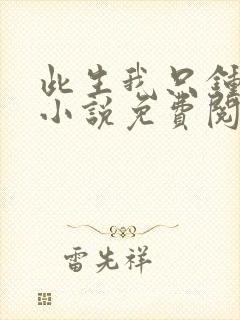 此生我只鍾
小説免費閱
雷先祥